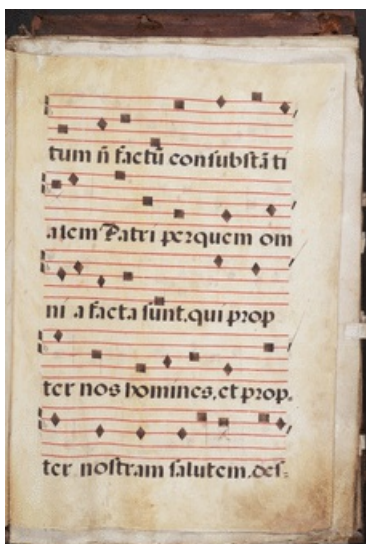 tum n̄ factū consubstā ti
alem Patri perquem om
ni a facta sunt. qui prop
ter nos homines, et prop.
ter nostram salutem. des: